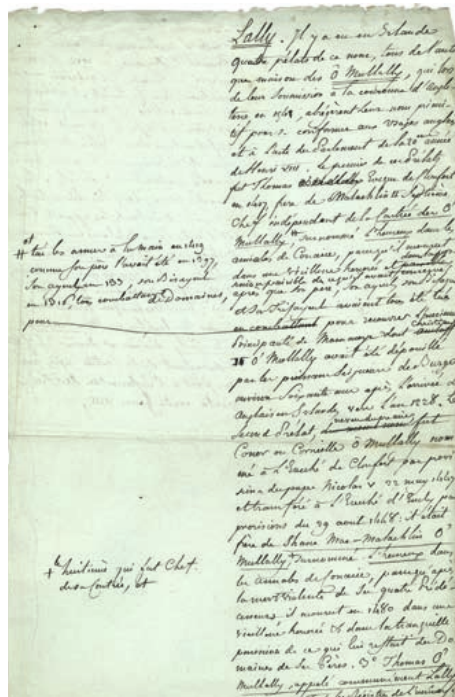 Lally. Il y a eu en Irlande
quatre prélats de ce nom, tous de l'anti
que maison des Ô Mullally, qui lors
de leur soumission à la couronne d'Angle
terre en 1541, abrégèrent leur nom primi
tif pour se conformer aux usages anglois
et à l'acte du Parlement de la année
de Henri VIII. Le premier de ces Prélats
fut Thomas Evêque de Clonfert
en frère de Malachlin
Chef indépendant de la Contrée des O'
Mullally, surnommé l'heureux dans les
annales de Conacie, parcequ'il mourut
dans une vieillesse honorée et
après que son père, son ayeul, son Bisayeul
et son Trisayeul avaient tous été tués
en combattant pour recouvrer
Principauté de dont
O' Mullally avait été dépouillé
par le Seigneur de Burgo
environ Soixante ans après l'arrivée des
Anglais en Irlande, vers l'an 1228. Le
Second Prélat,
Conor ou Corneille Ô Mullally, nom
mé à l'Evêché de Clonfert par provi
sion du pape Nicolas V 22 may
et transféré à l'Evêché d' par
provisions du 29 août 1448: il était
frère de Shane Mac-Malachlin O'
Mullally, surnommé l'heureux dans
les annales de Conacie, parcequ'après
la mort violente de ses quatre Prédé
cesseurs il mourut en 1480 dans une
vieillesse honorée & dans la tranquille
possession de ce qui lui restait des Do
maines de ses Pères. 3° Thomas O'
Mullally, appelé communément Lally
et
# tué les armes à la main en
comme son père l'avait été en 1397,
son ayeul en son Bisayeul
en 1316, tous combattans
pour
+ le huitième qui fut Chef
de sa Contrée, et